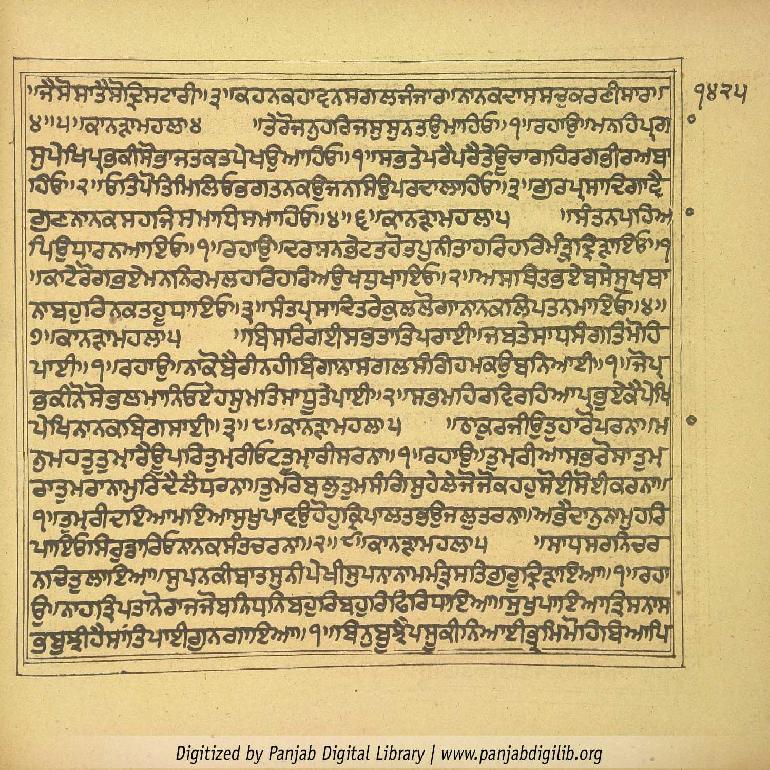 ੧੪੨੫
॥ਜੈਸੋ ਸਾ ਤੈਸੋ ਦ੍ਰਿਸਟਾਰੀ॥੩॥ਕਹਨ ਕਹਾਵਨ ਸਗਲ ਜੰਜਾਰਾ॥ਨਾਨਕ ਦਾਸ ਸਚੁ ਕਰਣੀ ਸਾਰਾ॥
੪॥੫॥ਕਾਨੜਾ ਮਹਲਾ ੪ ॥ਤੇਰੋ ਜਨੁ ਹਰਿ ਜਸੁ ਸੁਨਤ ਉਮਾਹਿਓ॥੧॥ਰਹਾਉ॥ਮਨਹਿ ਪ੍ਰਗ
ਸੁ ਪੇਖਿ ਪ੍ਰਭ ਕੀ ਸੋਭਾ ਜਤ ਕਤ ਪੇਖਉ ਆਹਿਓ॥੧॥ਸਭ ਤੇ ਪਰੈ ਪਰੈ ਤੇ ਊਚਾ ਗਹਿਰ ਗਭੀਰ ਅਥਾ
ਹਿਓ॥੨॥ਓਤਿ ਪੋਤਿ ਮਿਲਿਓ ਭਗਤਨ ਕਉ ਜਨ ਸਿਉ ਪਰਦਾ ਲਾਹਿਓ॥੩॥ਗੁਰ ਪ੍ਰਸਾਦਿ ਗਾਵੈ
ਗੁਣ ਨਾਨਕ ਸਹਜਿ ਸਮਾਧਿ ਸਮਾਹਿਓ॥੪॥੬॥ਕਾਨੜਾ ਮਹਲਾ ੫ ॥ਸੰਤਨ ਪਹਿ ਆ
ਪਿ ਉਧਾਰਨ ਆਇਓ॥੧॥ਰਹਾਉ॥ਦਰਸਨ ਭੇਟਤ ਹੋਤ ਪੁਨੀਤਾ ਹਰਿ ਹਰਿ ਮੰਤ੍ਰੁ ਦ੍ਰਿੜਾਇਓ॥੧
॥ਕਾਟੇ ਰੋਗ ਭਏ ਮਨ ਨਿਰਮਲ ਹਰਿ ਹਰਿ ਅਉਖਧੁ ਖਾਇਓ॥੨॥ਅਸਥਿਤ ਭਏ ਬਸੇ ਸੁਖ ਥਾ
ਨਾ ਬਹੁਰਿ ਨ ਕਤਹੂ ਧਾਇਓ॥੩॥ਸੰਤ ਪ੍ਰਸਾਦਿ ਤਰੇ ਕੁਲ ਲੋਗਾ ਨਾਨਕ ਲਿਪਤ ਨ ਮਾਇਓ॥੪॥
੭॥ਕਾਨੜਾ ਮਹਲਾ ੫ ॥ਬਿਸਰਿ ਗਈ ਸਭ ਤਾਤਿ ਪਰਾਈ॥ਜਬ ਤੇ ਸਾਧਸੰਗਤਿ ਮੋਹਿ
ਪਾਈ॥੧॥ਰਹਾਉ॥ਨਾ ਕੋ ਬੈਰੀ ਨਹੀ ਬਿਗਾਨਾ ਸਗਲ ਸੰਗਿ ਹਮ ਕਉ ਬਨਿ ਆਈ॥੧॥ਜੋ ਪ੍ਰ
ਭ ਕੀਨੋ ਸੋ ਭਲ ਮਾਨਿਓ ਏਹ ਸੁਮਤਿ ਸਾਧੂ ਤੇ ਪਾਈ॥੨॥ਸਭ ਮਹਿ ਰਵਿ ਰਹਿਆ ਪ੍ਰਭੁ ਏਕੈ ਪੇਖਿ
ਪੇਖਿ ਨਾਨਕ ਬਿਗਸਾਈ॥੩॥੮॥ਕਾਨੜਾ ਮਹਲਾ ੫ ॥ਠਾਕੁਰ ਜੀਉ ਤੁਹਾਰੋ ਪਰਨਾ॥ਮਾ
ਨੁ ਮਹਤੁ ਤੁਮ੍ਹਾਰੈ ਊਪਰਿ ਤੁਮ੍ਹਰੀ ਓਟ ਤੁਮ੍ਹਾਰੀ ਸਰਨਾ॥੧॥ਰਹਾਉ॥ਤੁਮ੍ਹਰੀ ਆਸ ਭਰੋਸਾ ਤੁਮ੍ਹ
ਰਾ ਤੁਮਰਾ ਨਾਮੁ ਰਿਦੈ ਲੈ ਧਰਨਾ॥ਤੁਮਰੋ ਬਲੁ ਤੁਮ ਸੰਗਿ ਸੁਹੇਲੇ ਜੋ ਜੋ ਕਹਹੁ ਸੋਈ ਸੋਈ ਕਰਨਾ॥
੧॥ਤੁਮਰੀ ਦਇਆ ਮਇਆ ਸੁਖੁ ਪਾਵਉ ਹੋਹੁ ਕ੍ਰਿਪਾਲ ਤ ਭਉਜਲੁ ਤਰਨਾ॥ਅਭੈ ਦਾਨੁ ਨਾਮੁ ਹਰਿ
ਪਾਇਓ ਸਿਰੁ ਡਾਰਿਓ ਨਾਨਕ ਸੰਤ ਚਰਨਾ॥੨॥੯॥ਕਾਨੜਾ ਮਹਲਾ ੫ ॥ਸਾਧ ਸਰਨਿ ਚਰ
ਨਾ ਚਿਤੁ ਲਾਇਆ॥ਸੁਪਨ ਕੀ ਬਾਤ ਸੁਨੀ ਪੇਖੀ ਸੁਪਨਾ ਨਾਮ ਮੰਤ੍ਰੁ ਸਤਿਗੁਰੂ ਦ੍ਰਿੜਾਇਆ॥੧॥ਰਹਾ
ਉ॥ਨਹ ਤ੍ਰਿਪਤਾਨੋ ਰਾਜ ਜੋਬਨਿ ਧਨਿ ਬਹੁਰਿ ਬਹੁਰਿ ਫਿਰਿ ਧਾਇਆ॥ਸੁਖੁ ਪਾਇਆ ਤ੍ਰਿਸਨਾ ਸ
ਭ ਬੁਝੀ ਹੈ ਸਾਂਤਿ ਪਾਈ ਗੁਨ ਗਾਇਆ॥੧॥ਬਿਨੁ ਬੂਝੇ ਪਸੂ ਕੀ ਨਿਆਈ ਭ੍ਰਮਿ ਮੋਹਿ ਬਿਆਪਿ
Digitized by Panjab Digital Library | www.panjabdigilib.org